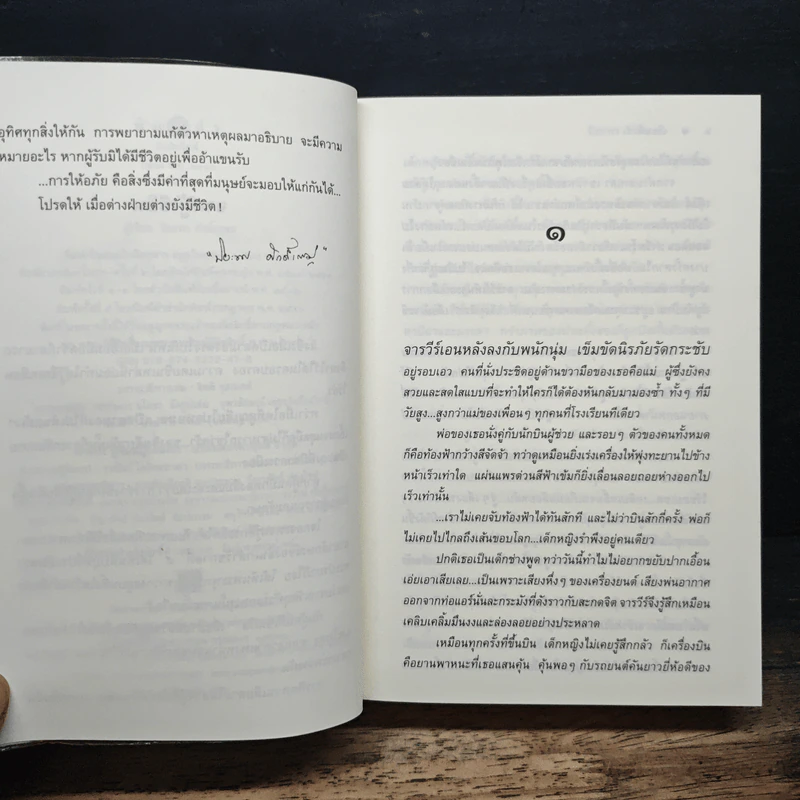 อุทิศทุกสิ่งให้กัน การพยายามแก้ตัวหาเหตุผลมาอธิบาย จะมีความ
หมายอะไร หากผู้รับมิได้มีชีวิตอยู่เพื่ออ้าแขนรับ
...การให้อภัย คือสิ่งซึ่งมีค่าที่สุดที่มนุษย์จะมอบให้แก่กันได้...
โปรดให้ เมื่อต่างฝ่ายต่างยังมีชีวิต!
๑
จารวีร์เอนหลังลงกับพนักนุ่ม เข็มขัดนิรภัยรัดกระชับ
อยู่รอบเอว คนที่นั่งประชิดอยู่ด้านขวามือของเธอคือแม่ ผู้ซึ่งยังคง
สวยและสดใสแบบที่จะทำให้ใครก็ได้ต้องหันกลับมามองซ้ำ ทั้งๆ ที่มี
วัยสูง...สูงกว่าแม่ของเพื่อนๆ ทุกคนที่โรงเรียนทีเดียว
พ่อของเธอนั่งคู่กับนักบินผู้ช่วย และรอบๆ ตัวของคนทั้งหมด
ก็คือท้องฟ้ากว้างสีจัดจ้า ทว่าดูเหมือนยิ่งเร่งเครื่องให้พุ่งทะยานไปข้าง
หน้าเร็วเท่าใด แผ่นแพรต่วนสีฟ้าเข้มก็ยิ่งเลื่อนลอยถอยห่างออกไป
เร็วเท่านั้น
...เราไม่เคยจับท้องฟ้าได้ทันสักที และไม่ว่าบินสักกี่ครั้ง พ่อก็
ไม่เคยไปไกลถึงเส้นขอบโลก...เด็กหญิงรำพึงอยู่คนเดียว
ปกติเธอเป็นเด็กช่างพูด ทว่าวันนี้ทำไมไม่อยากขยับปากเอื้อน
เอ่ยเอาเสียเลย...เป็นเพราะเสียงหึ่งๆ ของเครื่องยนต์ เสียงพ่นอากาศ
ออกจากท่อแอร์นั่นละกระมังที่ดังราวกับสะกดจิต จารวีร์จึงรู้สึกเหมือน
เคลิบเคลิ้มมึนงงและล่องลอยอย่างประหลาด
เหมือนทุกครั้งที่ขึ้นบิน เด็กหญิงไม่เคยรู้สึกกลัว ก็เครื่องบิน
คือยานพาหนะที่เธอแสนคุ้น คุ้นพอๆ กับรถยนต์คันยาวยี่ห้อดีของ